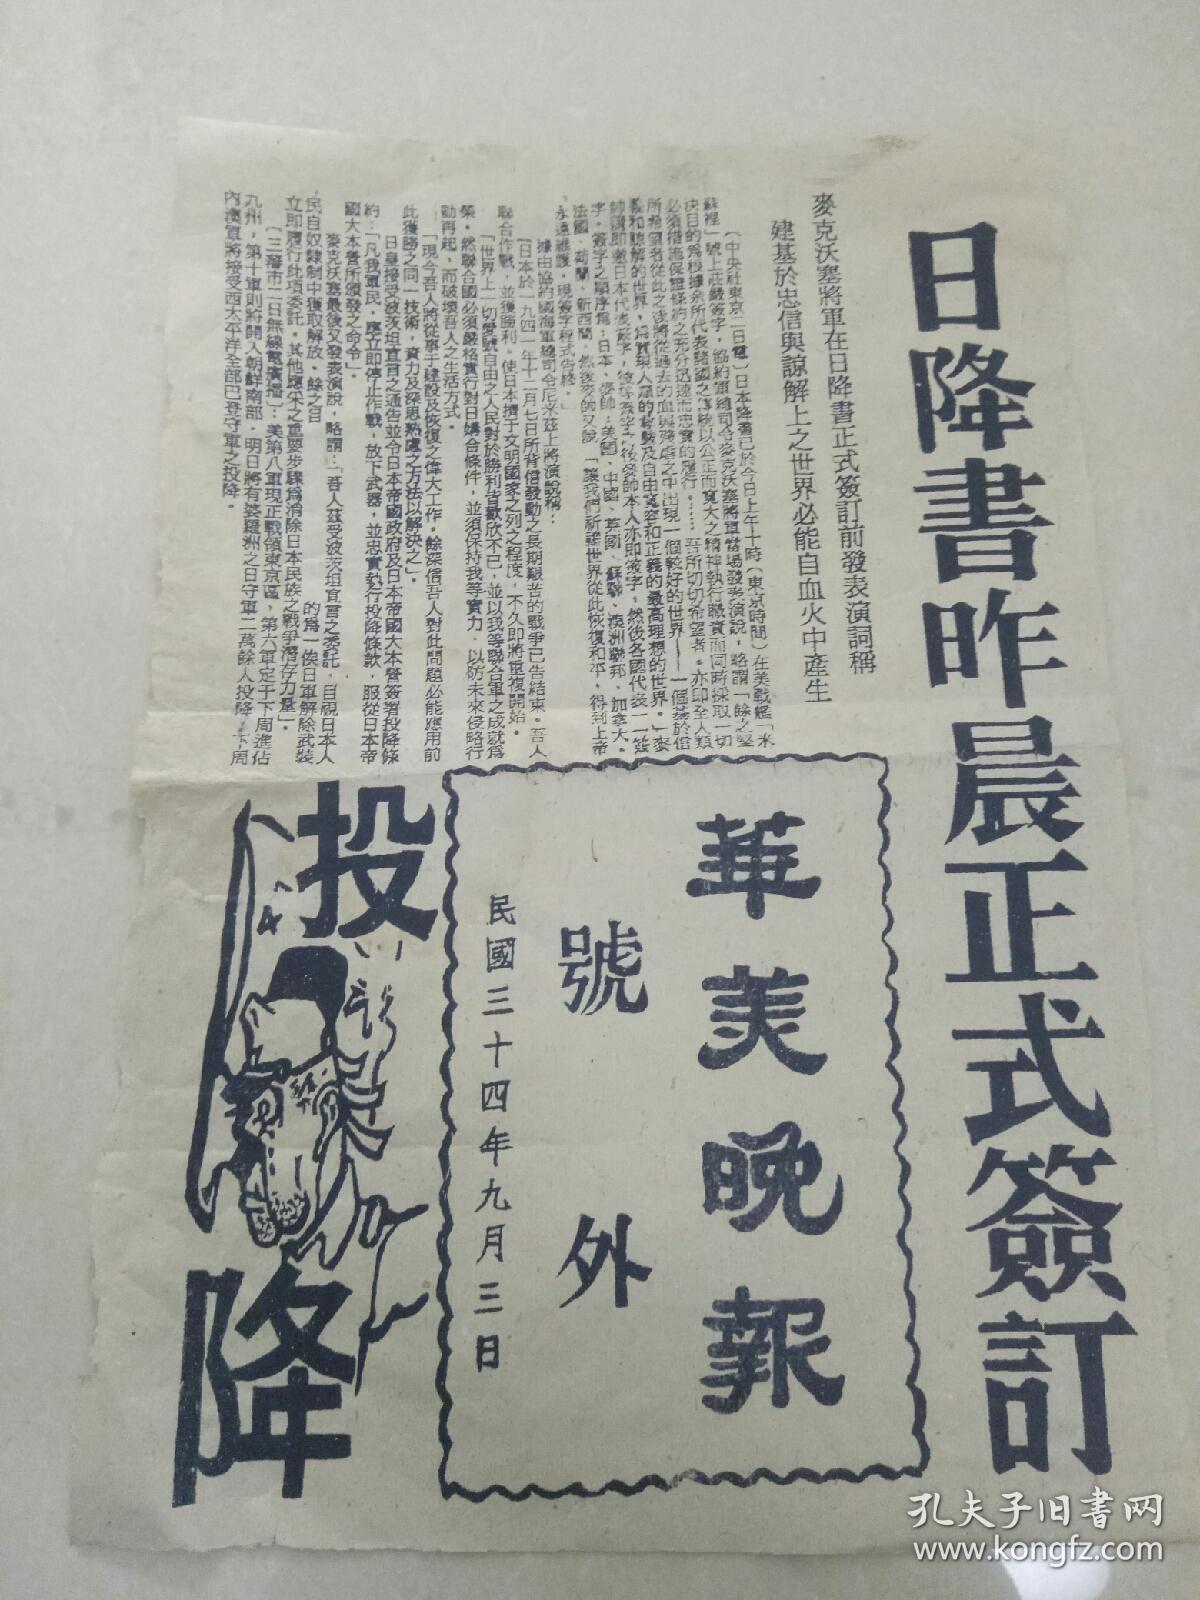 日降書昨晨正式簽訂
麥克沃塞將軍在日降書正式簽訂前發表演詞稱
建基於忠信與諒解上之世界必能自血火中產生
〔中央社東京二日電〕日本降書已於今日上午十時（東京時間）在美戰艦「米
蘇裡」號上莊嚴簽字，協約軍總司令麥克沃塞將軍當場發表演說，略謂「餘之堅
決目的為根據余所代表諸國之傳統以公正而寬大之精神執行職責而同時採取一切
必須措施保證條約之充分迅速而忠實的履行。……吾所切切希望者。亦即全人類
所希望者從此之後將從過去的血與殘虐之中出現一個較好的世界——一個基於信
義和諒解的世界，
法國、荷蘭、新西蘭。然後麥帥又說「讓我們祈禱世界從此恢復和平，得到上帝
永遠維護，現簽字程式告終。」
據由協約國海軍總司令尼米茲上將演說稱：
「日本於一九四一年十二月七日所背信發動之長期艱苦的戰爭已告結束。吾人
聯合作戰，並獲勝利。使日本擠于文明國家之列之程度，不久即將重複開始。
「世界上一切愛號自由之人民對於勝利皆歡欣不已，並以我等聯合軍之成就為
榮。然聯合國必須嚴格實行對日媾合條件，並須保持我等實力，以防未來侵略行
動再起，而破壞吾人之生活方式。
「現今吾人將從事于建設及恢復之偉大工作。餘深信吾人對此問題必能應用前
此獲勝之同一技術，資力及深思熟慮之方法以解決之」。
日皇接受波茨坦宣言之通告並令日本帝國政府及日本帝國大本營簽署投降條
約：「凡我軍民，應立即停止作戰，放下武器，並忠實執行投降條款，服從日本帝
國大本營所頒發之命令」。
麥克沃塞最後又發表演說，略謂：「吾人茲受波茨坦宣言之委託，目視日本人
民自奴隸制中獲取解放。餘之目的為一俟日軍解除武裝
立即履行此項委託。其他應采之重要步驟為消除日本民族之戰爭潛存力量」。
〔三藩市二日無線電廣播〕：美第八軍現正戰領東京區，第六軍定于下周進佔
九州，第十軍則將開入朝鮮南部，明日將有婆羅洲之日守軍二萬餘人投降，下周
內澳軍將接受西太平洋全部已登守軍之投降。
華美晚報
號外
民國三十四年九月三日
投降
孔夫子旧书网
www.kongfz.com